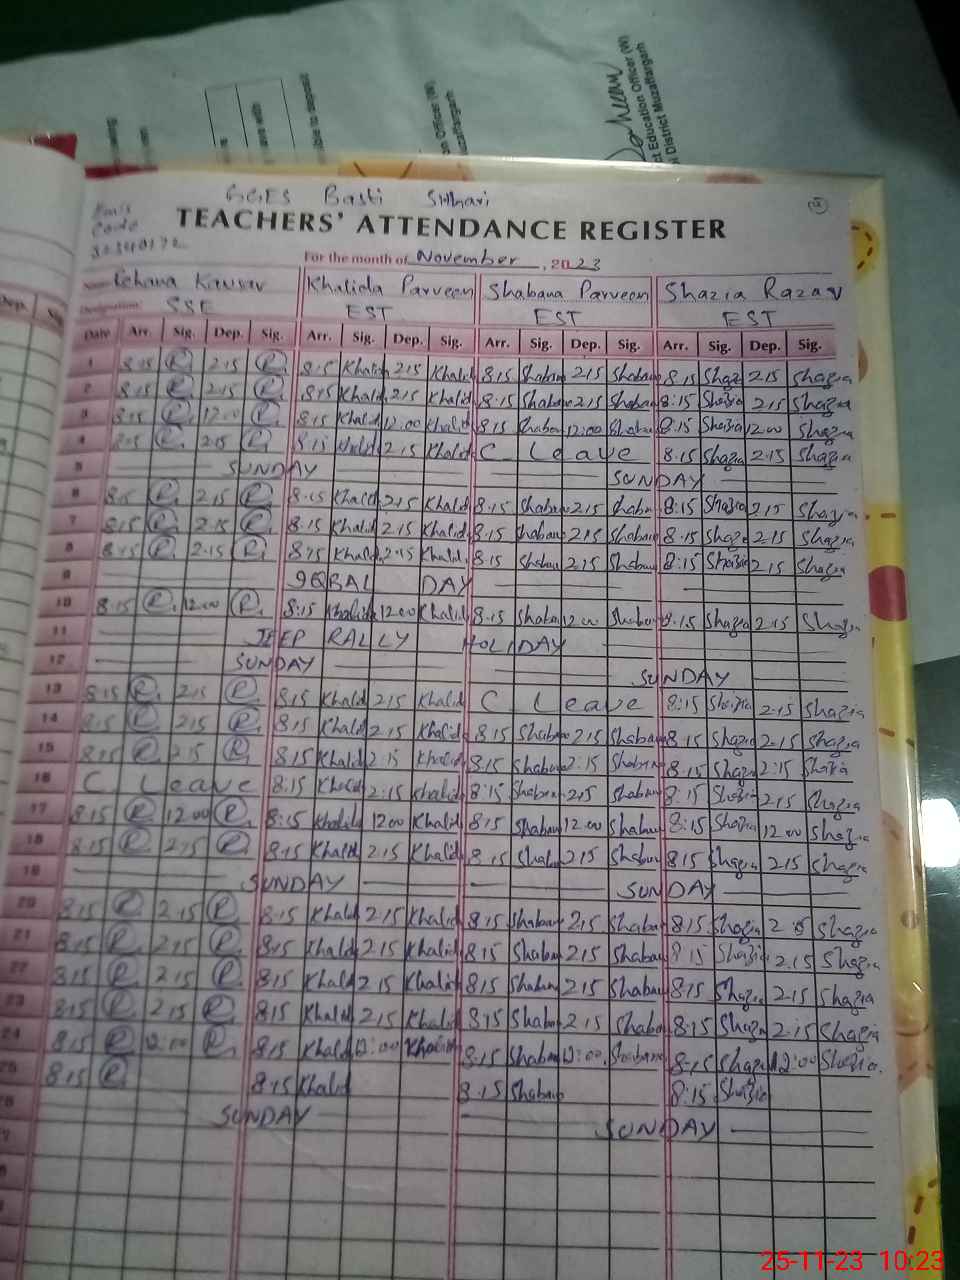 Education Officer (W)
District Muzaffargarh
on Officer (W)
Muzaffargarh
GGES Basti
TEACHERS' ATTENDANCE REGISTER
Code
For the month of November, 2023
Khalida Parveen Shabana Parveen Shazia
Designation: SSE EST EST EST
Date Arr. Sig. Dep. Sig. Arr. Sig. Dep. Sig. Arr. Sig. Dep. Sig. Arr. Sig. Dep. Sig.
1 8:15 R 2:15 R 8:15 Khalid 2:15 Khalid 8:15 Shaban 2:15 Shaban 8:15 Shazia 2:15 Shazia
2 8:15 R 2:15 R 8:15 Khalid 2:15 Khalid 8:15 Shaban 2:15 Shaban 8:15 Shazia 2:15 Shazia
3 8:15 R 12:00 R 8:15 Khalid 12:00 Khalid 8:15 Shaban 12:00 Shaban 8:15 Shazia 12:00 Shazia
4 8:15 R 2:15 R 8:15 Khalid 2:15 Khalid C Leave 8:15 Shazia 2:15 Shazia
5 SUNDAY SUNDAY
6 8:15 R 2:15 R 8:15 Khalid 2:15 Khalid 8:15 Shaban 2:15 Shaban 8:15 Shazia 2:15 Shazia
7 8:15 R 2:15 R 8:15 Khalid 2:15 Khalid 8:15 Shaban 2:15 Shaban 8:15 Shazia 2:15 Shazia
8 8:15 R 2:15 R 8:15 Khalid 2:15 Khalid 8:15 Shaban 2:15 Shaban 8:15 Shazia 2:15 Shazia
9 IQBAL DAY
10 8:15 R 12:00 R 8:15 Khalid 12:00 Khalid 8:15 Shaban 12:00 Shaban 8:15 Shazia 2:15 Shazia
11 JEEP RALLY HOLIDAY
12 SUNDAY SUNDAY
13 8:15 R 2:15 R 8:15 Khalid 2:15 Khalid C Leave 8:15 Shazia 2:15 Shazia
14 8:15 R 2:15 R 8:15 Khalid 2:15 Khalid 8:15 Shaban 2:15 Shaban 8:15 Shazia 2:15 Shazia
15 8:15 R 2:15 R 8:15 Khalid 2:15 Khalid 8:15 Shaban 2:15 Shaban 8:15 Shazia 2:15 Shazia
16 C Leave 8:15 Khalid 2:15 Khalid 8:15 Shaban 2:15 Shaban 8:15 Shazia 2:15 Shazia
17 8:15 R 12:00 R 8:15 Khalid 12:00 Khalid 8:15 Shaban 12:00 Shaban 8:15 Shazia 12:00 Shazia
18 8:15 R 2:15 R 8:15 Khalid 2:15 Khalid 8:15 Shaban 2:15 Shaban 8:15 Shazia 2:15 Shazia
19 SUNDAY SUNDAY
20 8:15 R 2:15 R 8:15 Khalid 2:15 Khalid 8:15 Shaban 2:15 Shaban 8:15 Shazia 2:15 Shazia
21 8:15 R 2:15 R 8:15 Khalid 2:15 Khalid 8:15 Shaban 2:15 Shaban 8:15 Shazia 2:15 Shazia
22 8:15 R 2:15 R 8:15 Khalid 2:15 Khalid 8:15 Shaban 2:15 Shaban 8:15 Shazia 2:15 Shazia
23 8:15 R 2:15 R 8:15 Khalid 2:15 Khalid 8:15 Shaban 2:15 Shaban 8:15 Shazia 2:15 Shazia
24 8:15 R 12:00 R 8:15 Khalid 12:00 Khalid 8:15 Shaban 12:00 Shabana 8:15 Shazia 12:00 Shazia
25 8:15 R 8:15 Khalid 8:15 Shaban 8:15 Shazia
26 SUNDAY SUNDAY
25-11-23 10:23